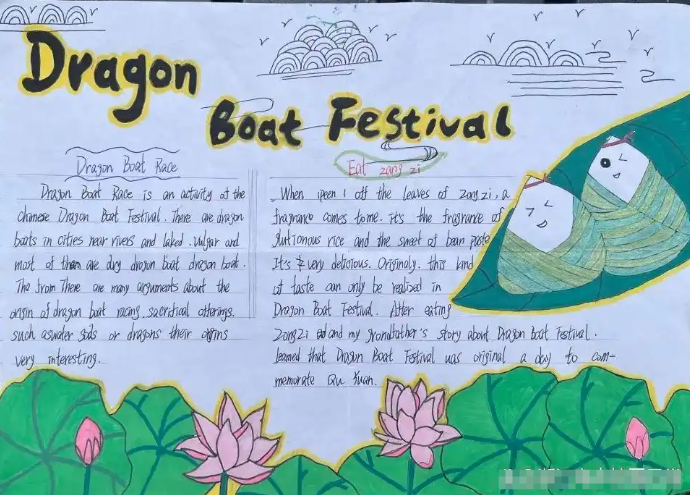 Dragon
Boat Festival
Dragon Boat Race
Dragon Boat Race is an activity of the
chinese Dragon Boat Festival. There are dragon
boats in cities near rivers and laked. vulgar and
most of them are dry dragon boat dragon boat.
The from There are many arguments about the
origin of dragon boat racing. sacrificial offerings.
such aswater gods or dragons their origins
very interesting.
Eat zong zi
When ipeen I off the leaves of zong zi, a
fragrance comes to me. It's the fragrance of
glutionous rice and the sweet of bean paste
It's very delicious. Originaly. this kind
of taste can only be realized in
Dragon Boat Festival. After eating
Zong Zi and my grandfather's story about Dragon boat Festival.
learned that Dragon Boat Festival was original a day to com-
memorate Qu Yuan.